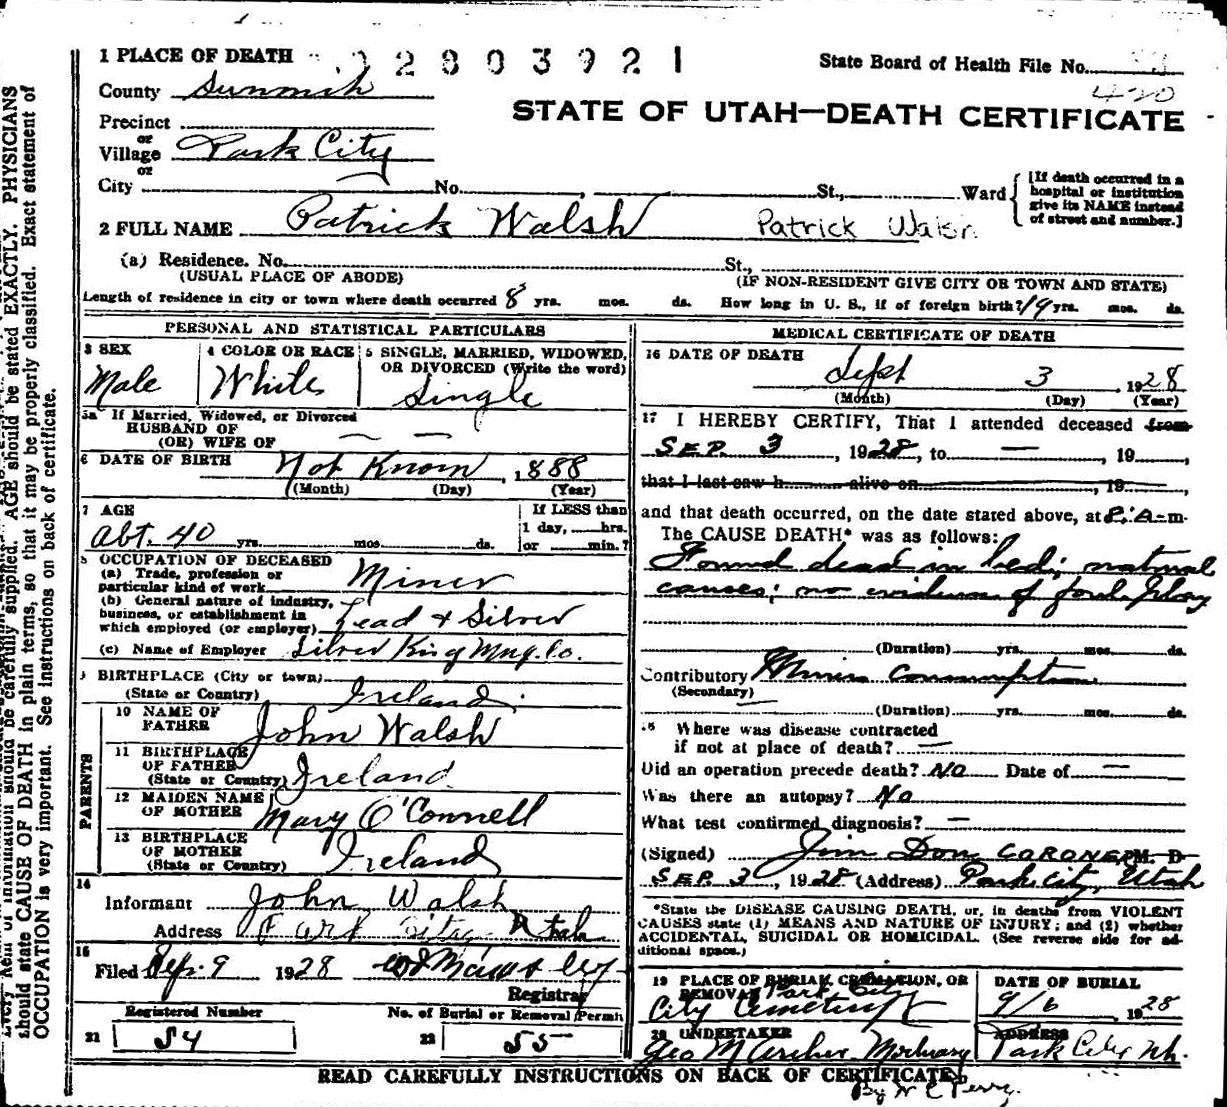 1 PLACE OF DEATH 02803921 State Board of Health File No.
420
County Summit
STATE OF UTAH—DEATH CERTIFICATE
Precinct
or
Village Park City
or
City No. , St., Ward [If death occurred in a hospital or institution give its NAME instead of street and number.]
2 FULL NAME Patrick Walsh Patrick Walsh
(a) Residence. No. St.,
(USUAL PLACE OF ABODE) (IF NON-RESIDENT GIVE CITY OR TOWN AND STATE)
Length of residence in city or town where death occurred 8 yrs. mos. ds. How long in U. S., if of foreign birth? 19 yrs. mos. ds.
PERSONAL AND STATISTICAL PARTICULARS
3 SEX
Male
4 COLOR OR RACE
White
5 SINGLE, MARRIED, WIDOWED, OR DIVORCED (Write the word)
Single
5a If Married, Widowed, or Divorced
HUSBAND OF
(OR) WIFE OF — —
6 DATE OF BIRTH Not Known, 1888
(Month) (Day) (Year)
7 AGE
Abt. 40 yrs. mos. ds.
If LESS than
1 day, hrs.
or min.?
8 OCCUPATION OF DECEASED
(a) Trade, profession or
particular kind of work Miner
(b) General nature of industry,
business, or establishment in
which employed (or employer) Lead & Silver
(c) Name of Employer Silver King Mng. Co.
9 BIRTHPLACE (City or town)
(State or Country) Ireland
PARENTS
10 NAME OF
FATHER John Walsh
11 BIRTHPLACE
OF FATHER
(State or Country) Ireland
12 MAIDEN NAME
OF MOTHER Mary O'Connell
13 BIRTHPLACE
OF MOTHER
(State or Country) Ireland
14
Informant John Walsh
Address Park City Utah
15
Filed Sep. 9 1928
Registrar
Registered Number
21 54
No. of Burial or Removal Permit
22 55
MEDICAL CERTIFICATE OF DEATH
16 DATE OF DEATH
Sept 3, 1928
(Month) (Day) (Year)
17 I HEREBY CERTIFY, That I attended deceased from
SEP. 3, 1928, to —, 19
that I last saw h alive on, 19
and that death occurred, on the date stated above, at 8 A m.
The CAUSE DEATH* was as follows:
Found dead in bed; natural
causes; no evidence of foul play
(Duration) yrs. mos. ds.
Contributory Miners Consumption
(Secondary)
(Duration) yrs. mos. ds.
18 Where was disease contracted
if not at place of death? —
Did an operation precede death? No Date of —
Was there an autopsy? No
What test confirmed diagnosis? —
(Signed) Jim Don CORONER M. D
SEP. 3, 1928 (Address) Park City, Utah
*State the DISEASE CAUSING DEATH, or, in deaths from VIOLENT
CAUSES state (1) MEANS AND NATURE OF INJURY; and (2) whether
ACCIDENTAL, SUICIDAL OR HOMICIDAL. (See reverse side for ad-
ditional space.)
19 PLACE OF BURIAL, CREMATION, OR
REMOVAL Park City
City Cemetery
DATE OF BURIAL
9/6, 1928
20 UNDERTAKER
Geo M Archer Mortuary
ADDRESS
Park City Ut.
READ CAREFULLY INSTRUCTIONS ON BACK OF CERTIFICATE
By N C Perry.
should be carefully supplied. AGE should be stated EXACTLY. PHYSICIANS
should state CAUSE OF DEATH in plain terms, so that it may be properly classified. Exact statement of
OCCUPATION is very important. See instructions on back of certificate.